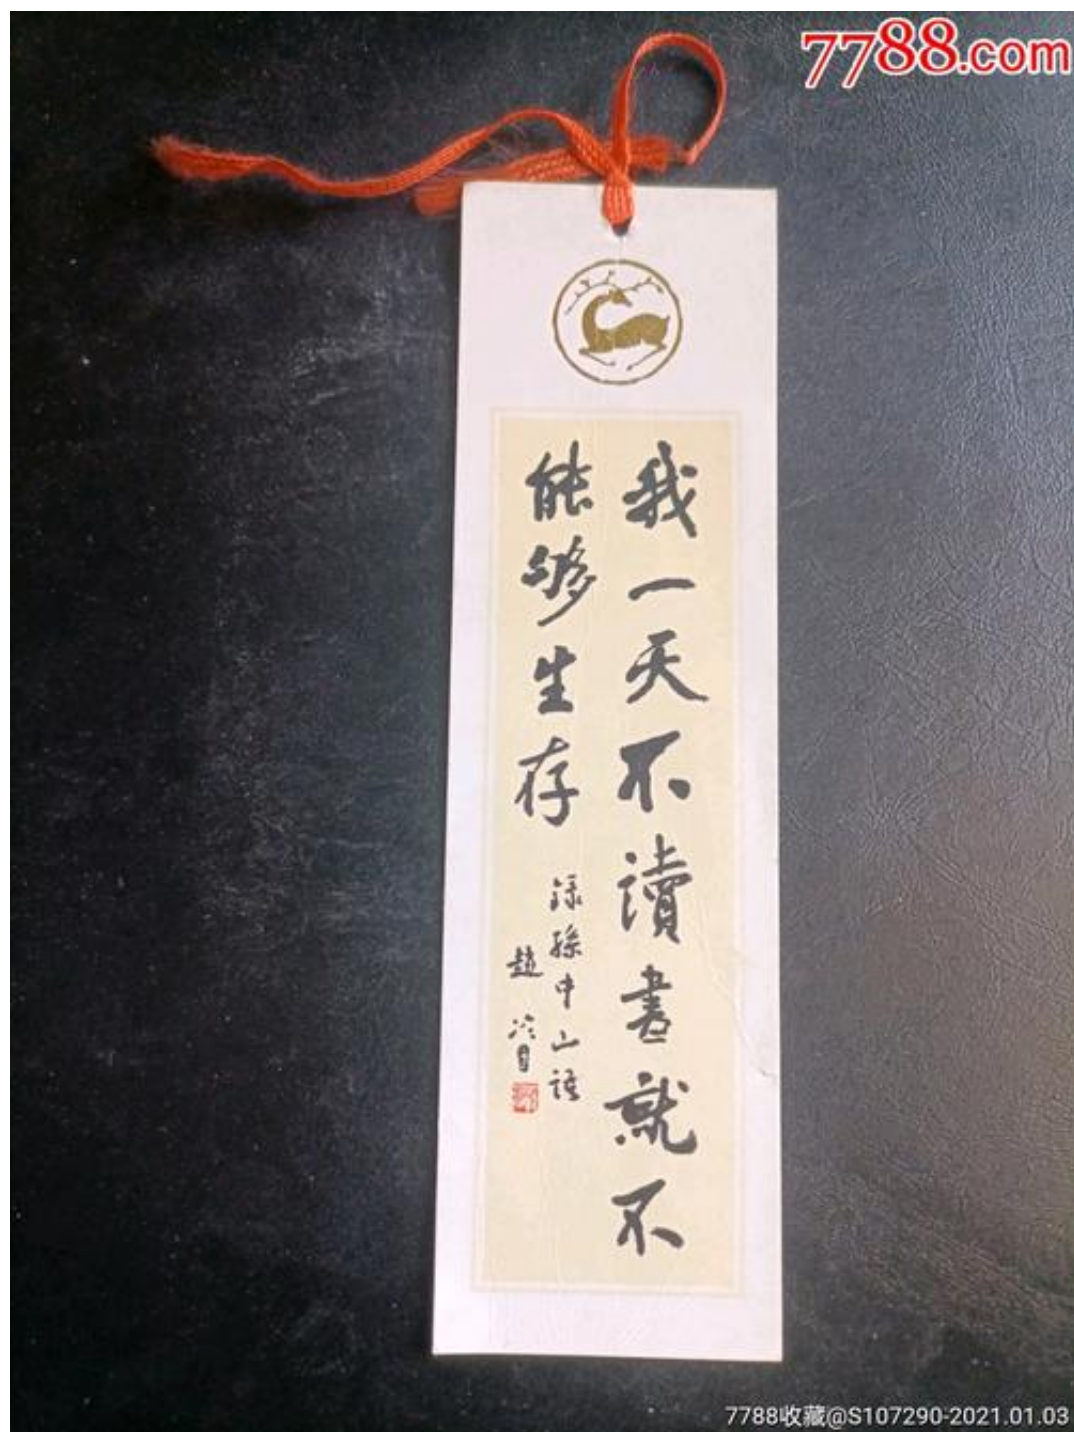 7788.com
我一天不讀書就不
能够生存
錄孫中山語
趙冷月
7788收藏@S107290-2021.01.03